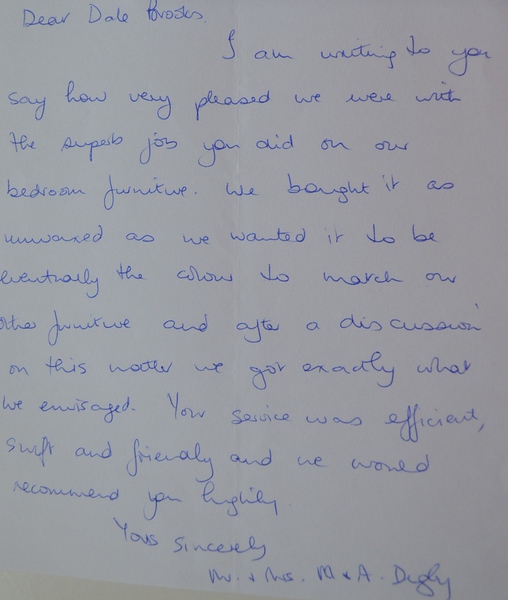 Dear Dale Brooks.
I am writing to you
say how very pleased we were with
the superb job you did on our
bedroom furniture. We bought it as
unwaxed as we wanted it to be
eventually the colour to match our
other furniture and after a discussion
on this matter we got exactly what
we envisaged. Your service was efficient,
swift and friendly and we would
recommend you highly
Yours sincerely
Mr. + Mrs. M + A.